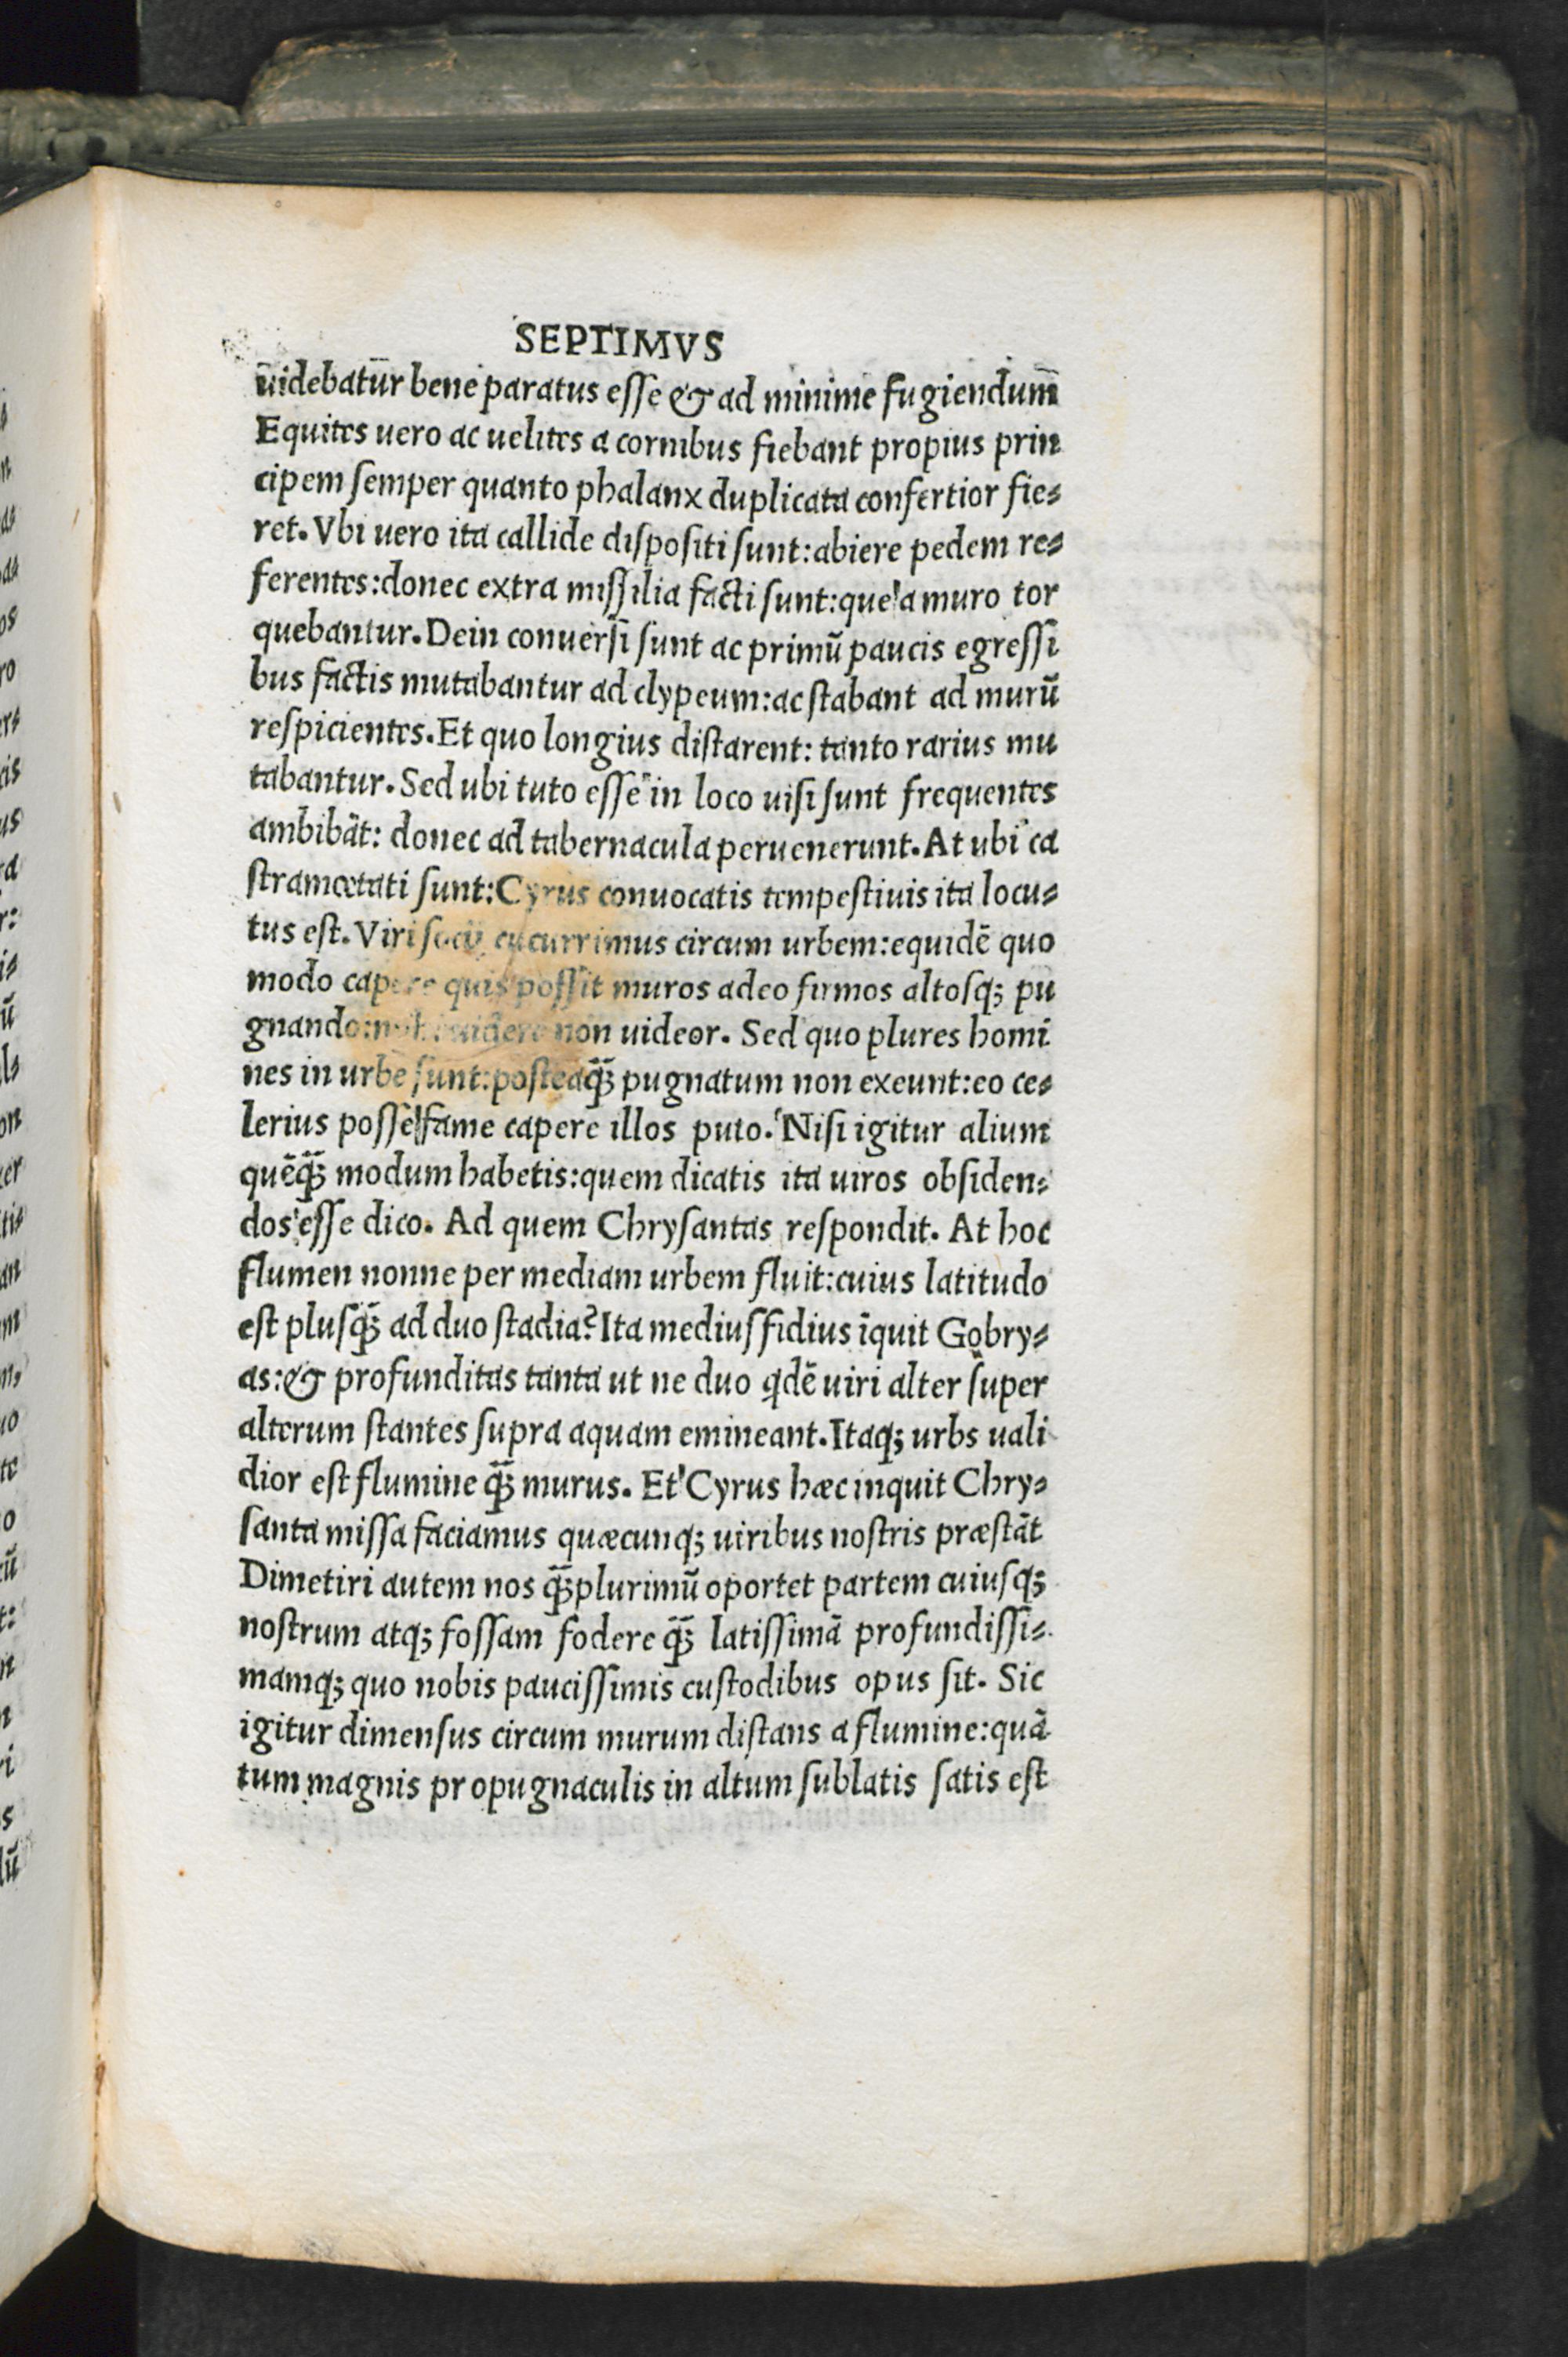 SEPTIMVS
uidebatur bene paratus esse & ad minime fugiendum
Equites uero ac uelites a cornibus fiebant propius prin
cipem semper quanto phalanx duplicata confertior fie⸗
ret. Vbi uero ita callide dispositi sunt: abiere pedem re⸗
ferentes: donec extra missilia facti sunt: que a muro tor
quebantur. Dein conuersi sunt ac primū paucis egressi
bus factis mutabantur ad clypeum: ac stabant ad murū
respicientes. Et quo longius distarent: tanto rarius mu
tabantur. Sed ubi tuto esse in loco uisi sunt frequentes
ambibāt: donec ad tabernacula peruenerunt. At ubi ca
strametati sunt: Cyrus conuocatis tempestiuis ita locu⸗
tus est. Viri socii cucurrimus circum urbem: equidē quo
modo capere quis possit muros adeo firmos altosq; pu
gnando: uidere non uideor. Sed quo plures homi
nes in urbe sunt: posteaq̄; pugnatum non exeunt: eo ce⸗
lerius posse fame capere illos puto. Nisi igitur alium
quēq̄; modum habetis: quem dicatis ita uiros obsiden⸗
dos esse dico. Ad quem Chrysantas respondit. At hoc
flumen nonne per mediam urbem fluit: cuius latitudo
est plusq̄; ad duo stadia? Ita mediusfidius īquit Gobry⸗
as: & profunditas tanta ut ne duo qdē uiri alter super
alterum stantes supra aquam emineant. Itaq; urbs uali
dior est flumine q̄; murus. Et Cyrus hæc inquit Chry⸗
santa missa faciamus quæcunq; uiribus nostris præstāt
Dimetiri autem nos q̄; plurimū oportet partem cuiusq;
nostrum atq; fossam fodere q̄; latissimā profundissi⸗
mamq; quo nobis paucissimis custodibus opus sit. Sic
igitur dimensus circum murum distans a flumine: quā
tum magnis propugnaculis in altum sublatis satis est